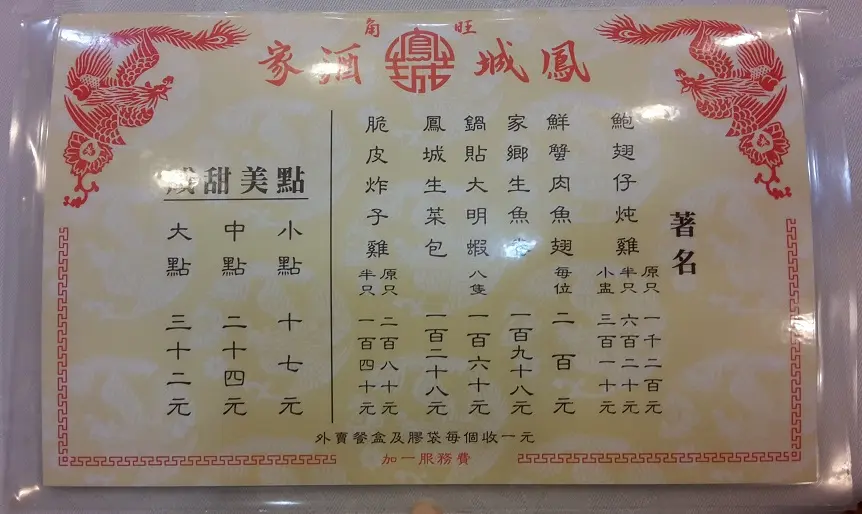 旺角
鳳城酒家
鳳城
著名
鮑翅仔炖雞
原只 一千二百元
半只 六百二十元
小盅 三百一十元
鮮蟹肉魚翅 每位 二百元
家鄉生魚 一百九十八元
鍋貼大明蝦 八隻 一百六十元
鳳城生菜包 一百二十八元
脆皮炸子雞
原只 二百八十元
半只 一百四十元
甜美點
小點 十七元
中點 二十四元
大點 三十二元
外賣餐盒及膠袋每個收一元
加一服務費